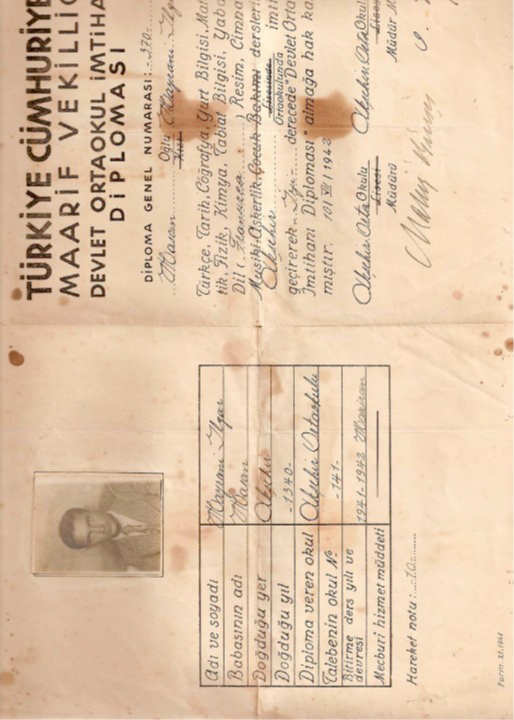 TÜRKİYE CÜMHURİYE
MAARİF VEKİLLİĞ
DEVLET ORTAOKUL İMTİHA
DİPLOMASI
DİPLOMA GENEL NUMARASI: 370
Hasan Oğlu
Kızı
Türkçe, Tarih, Coğrafya, Yurt Bilgisi, Mat
tik, Fizik, Kimya, Tabiat Bilgisi, Yaba
Dil (Fransızca) Resim, Cimna
Musiki, Askerlik, Çocuk Bakımı dersleri
Akşehir Lisesinde imti
Ortaokulunda
geçirerek derecede "Devlet Orta
İmtihanı Diploması" almağa hak ka
mıştır. 101 VII 1942
Akşehir Orta Okulu
Lisesi
Müdürü
Akşehir Orta Okulu
Lisesi
Müdür M
Adı ve soyadı
Babasının adı Hasan
Doğduğu yer Akşehir
Doğduğu yıl -1340-
Diploma veren okul Akşehir Ortaokulu
Talebenin okul № -141-
Bitirme ders yılı ve devresi 1941-1942 Haziran
Mecburi hizmet müddeti
Hareket notu: 10